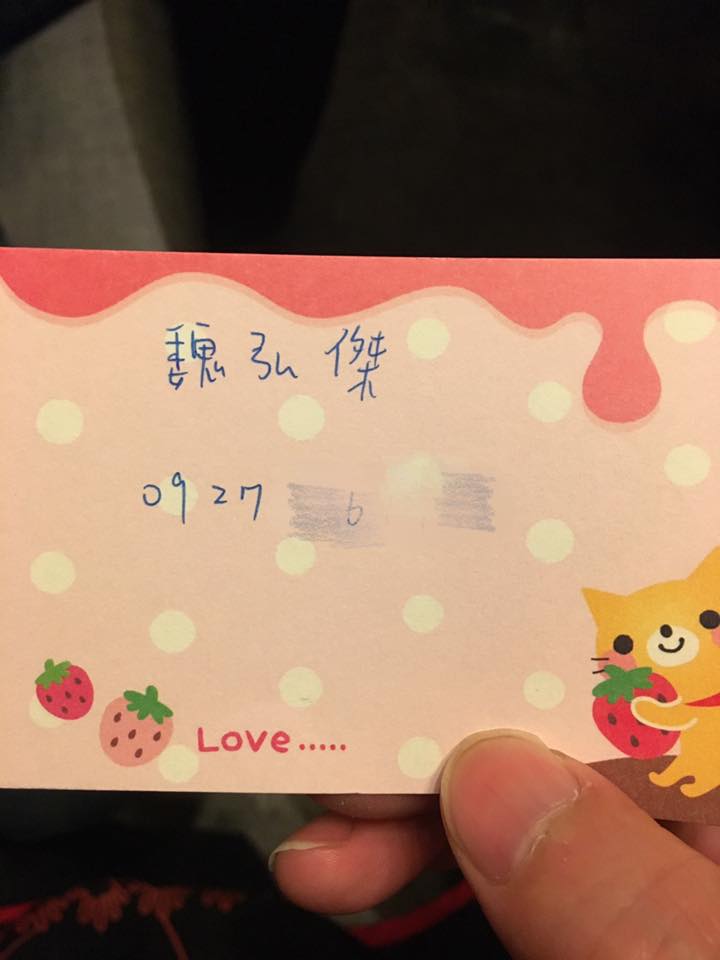 魏弘傑
0927 6
Love.....